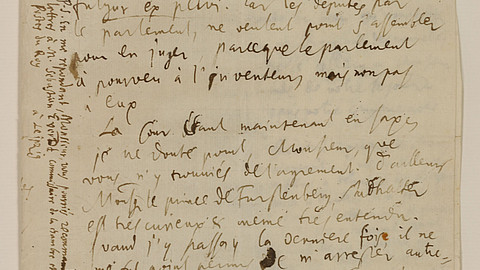 fulgur ex pelvi. Car les deputés par
le parlement, ne veulent point s'assembler
pour en juger, parceque le parlement
a pourveu à l'inventeur, mais non pas
à eux
La Cour étant maintenant en Saxe
je ne doute point, Monsieur, que
vous n'y trouviés de l'agrement. D'ailleurs
Mons. le prince de Furstenberg, Stadthalter
est tres curieux et même tres entendu.
quand j'y passay la derniere fois il ne
m'arrester
P.S. En me repondant Monsieur, vous pourriés recommander
lettres à M. Sebastien Evert Commissaire de la chambre
postes du Roy
à Leipzig